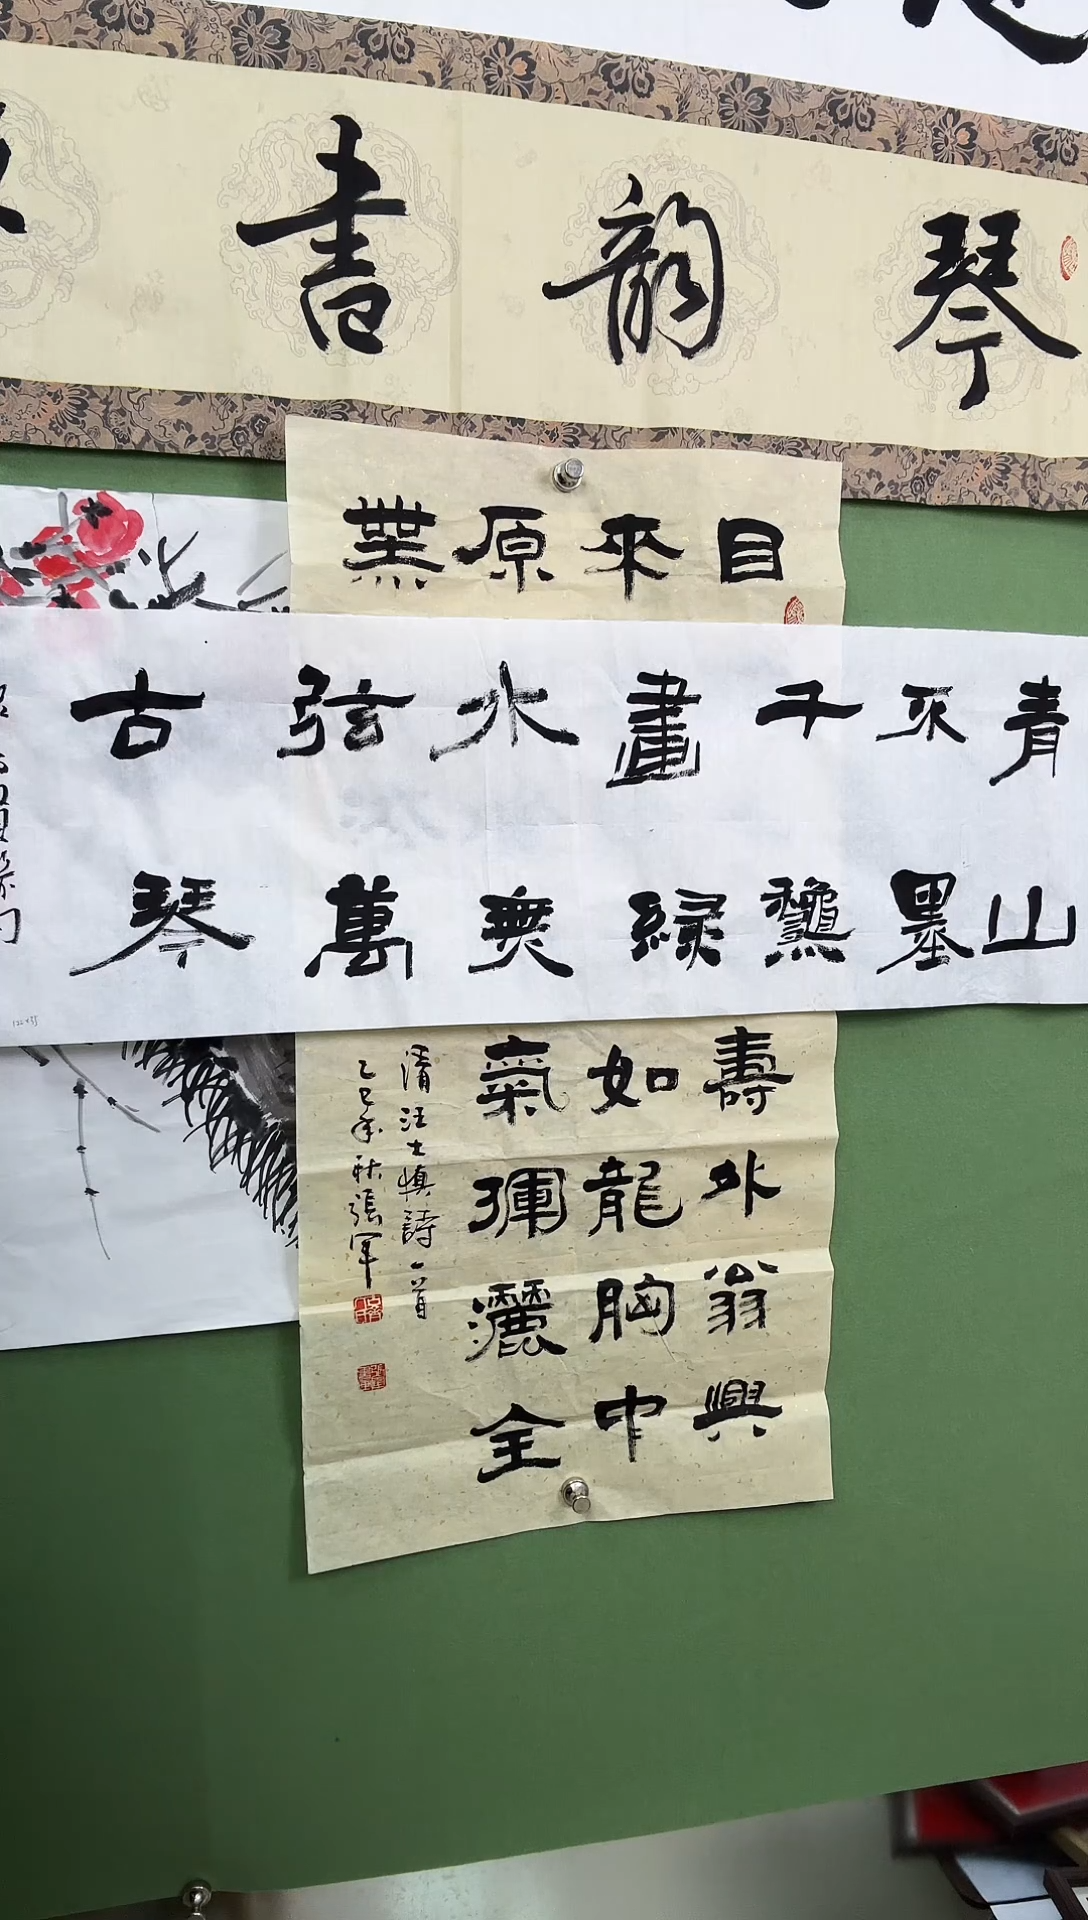 琴韵書
目
來
原
無
青山
不墨
千龝
畫緑
水無
弦萬
古琴
壽外翁興
如龍胸中
氣揮灑全
清汪士慎詩一首
乙巳年秋張軍